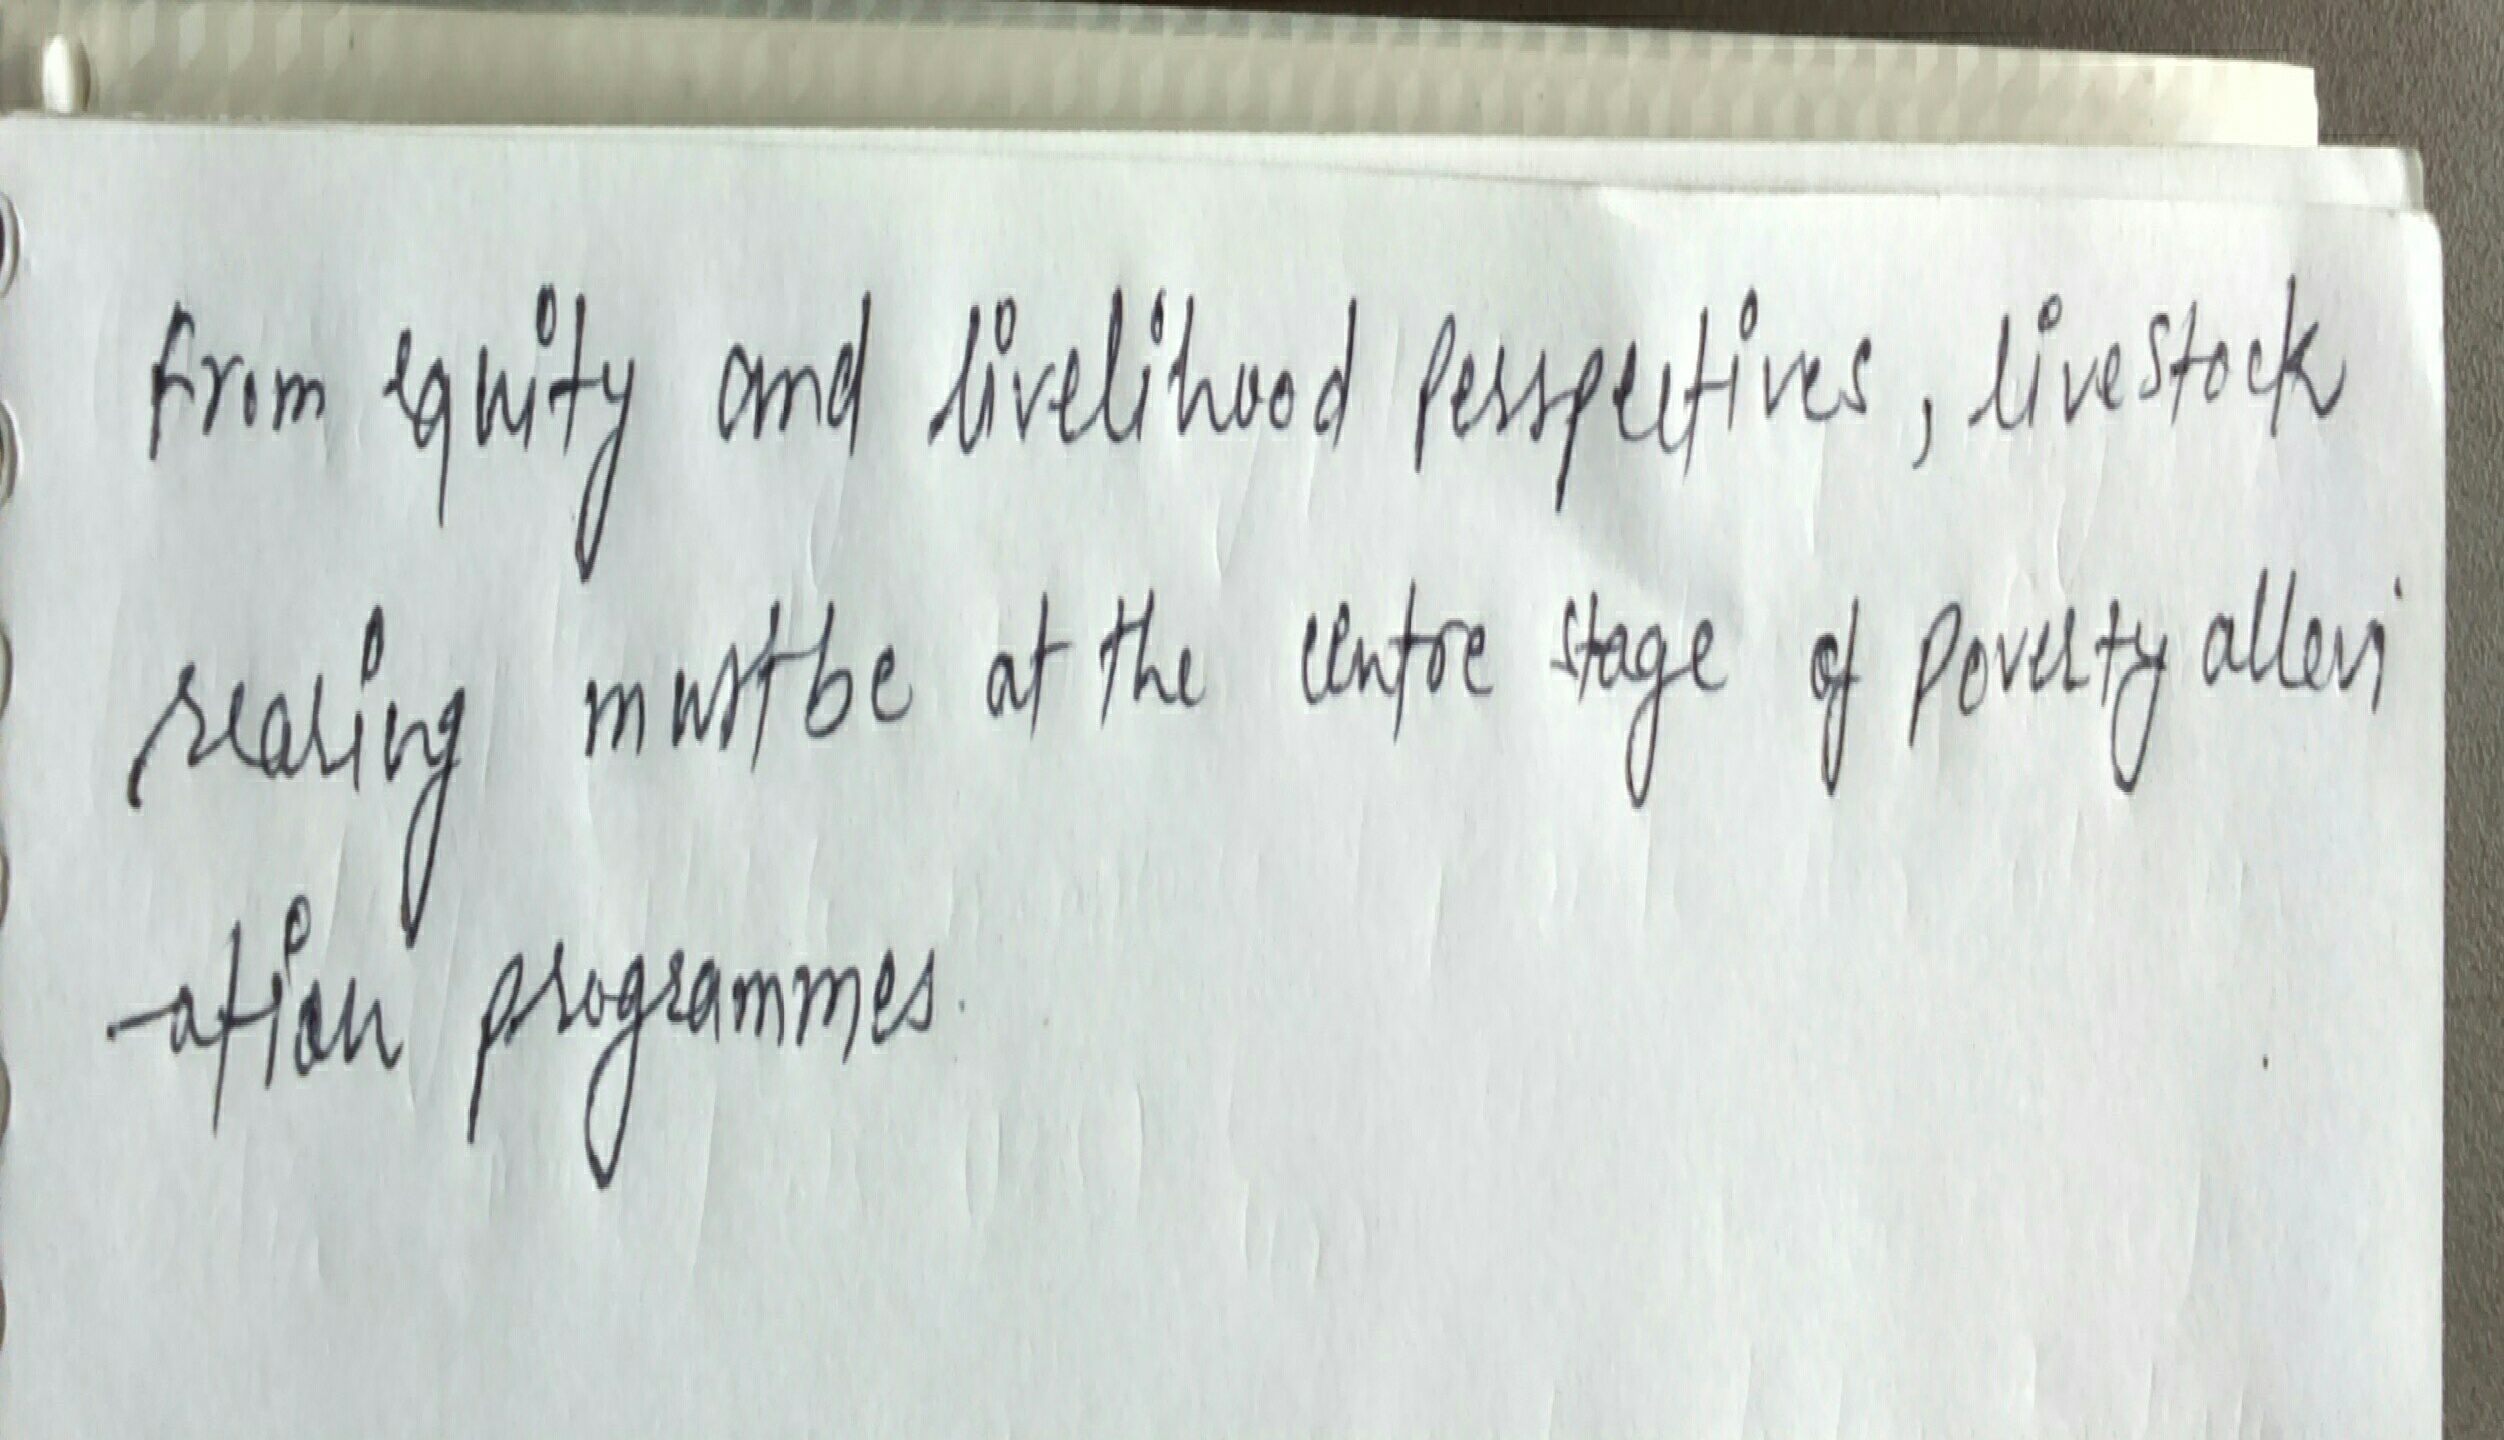 From equity and livelihood perspectives, livestock
rearing must be at the centre stage of Poverty allevi
-ation programmes.